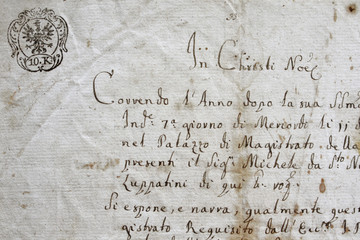 10. K.
In Christi Noe
Correndo l'Anno dopo la sua
Ind.e 7.a giorno di Mercordì li 11 d
nel Palazzo di Magistrato della
presenti il Sig.r Michele da S.to
Luppatini di qui
Si espone, e narra, qualmente ques
gistrato Requisito dall'